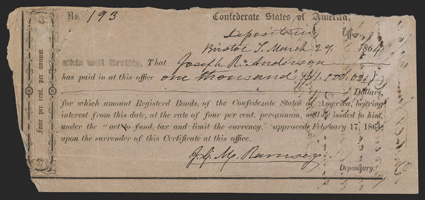 No. 193
Confederate States of America,
Depository Office,
Bristol T. March 29, 1864
This will Certify, That Joseph R. Anderson
has paid in at this office one thousand ($1.000.
Dollars,
for which amount Registered Bonds, of the Confederate States of America, bearing
interest from this date, at the rate of four per cent. per annum, will be issued to him,
under the "act to fund, tax and limit the currency," approved February 17, 1864,
upon the surrender of this Certificate at this office.
J. G. M. Ramsey
Depositary.
four per cent. per annum
four per cent. per annum